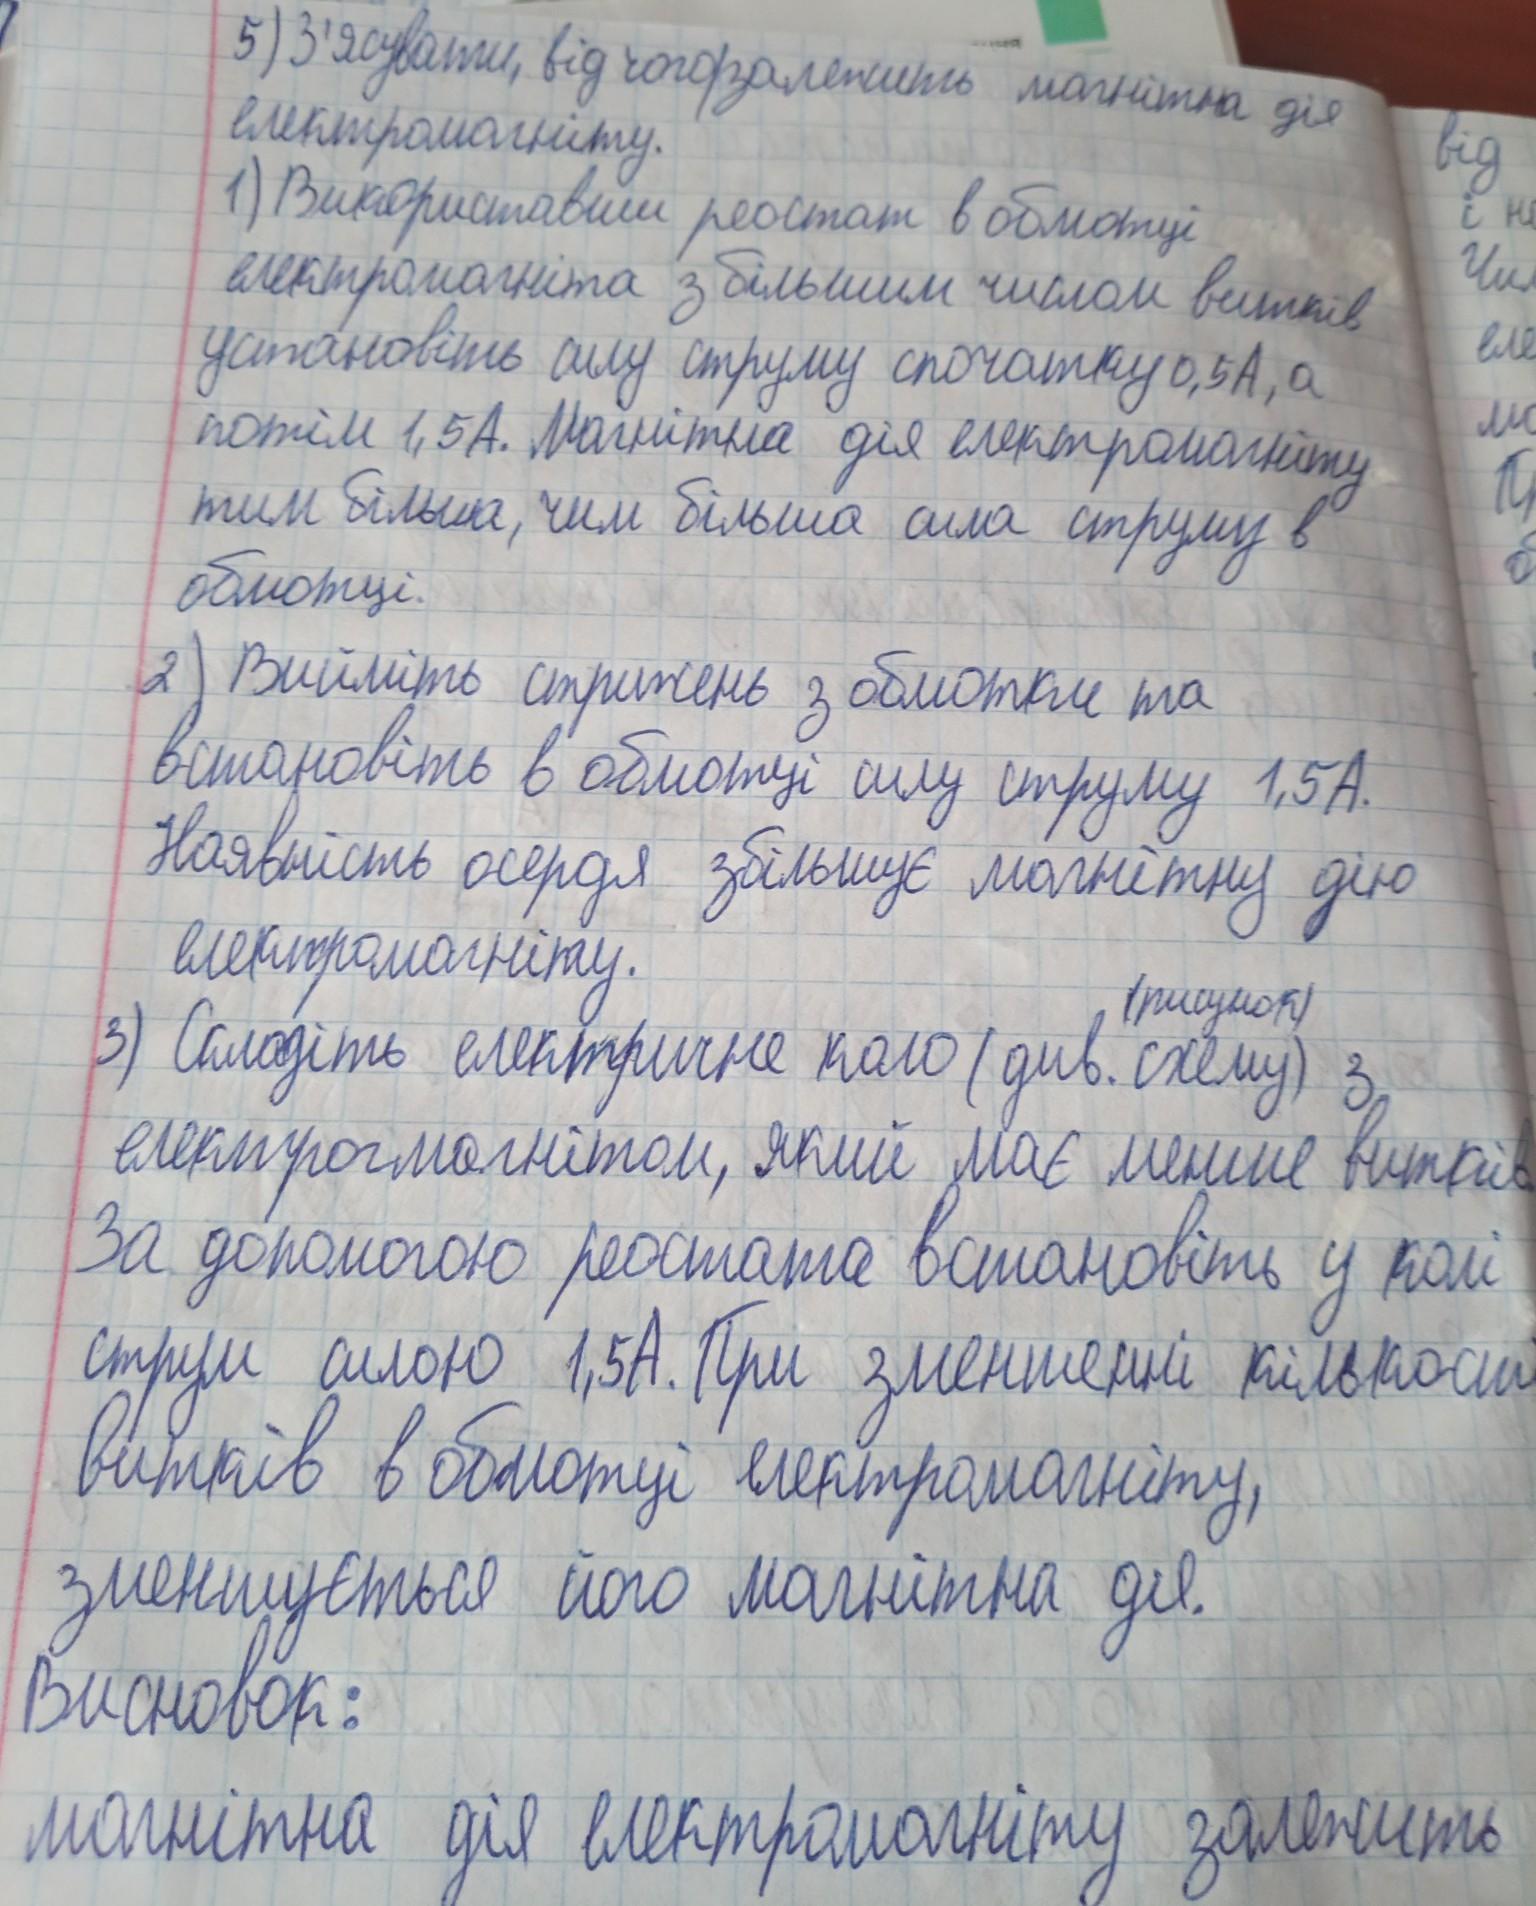 5) З'ясувати, від чого залежить магнітна дія
електромагніту.
1) Використавши реостат в обмотці
електромагніта з більшим числом витків
установіть силу струму спочатку 0,5А, а
потім 1,5А. Магнітна дія електромагніту
тим більша, чим більша сила струму в
обмотці.
2) Вийміть стрижень з обмотки та
встановіть в обмотці силу струму 1,5А.
Наявність осердя збільшує магнітну дію
електромагніту.
(рисунок)
3) Складіть електричне коло (див. схему) з
електрогмагнітом, який має менше витків.
За допомогою реостата встановіть у колі
струм силою 1,5А. При зменшенні кількості
витків в обмотці електромагніту,
зменшується його магнітна дія.
Висновок:
магнітна дія електромагніту залежить
від
і